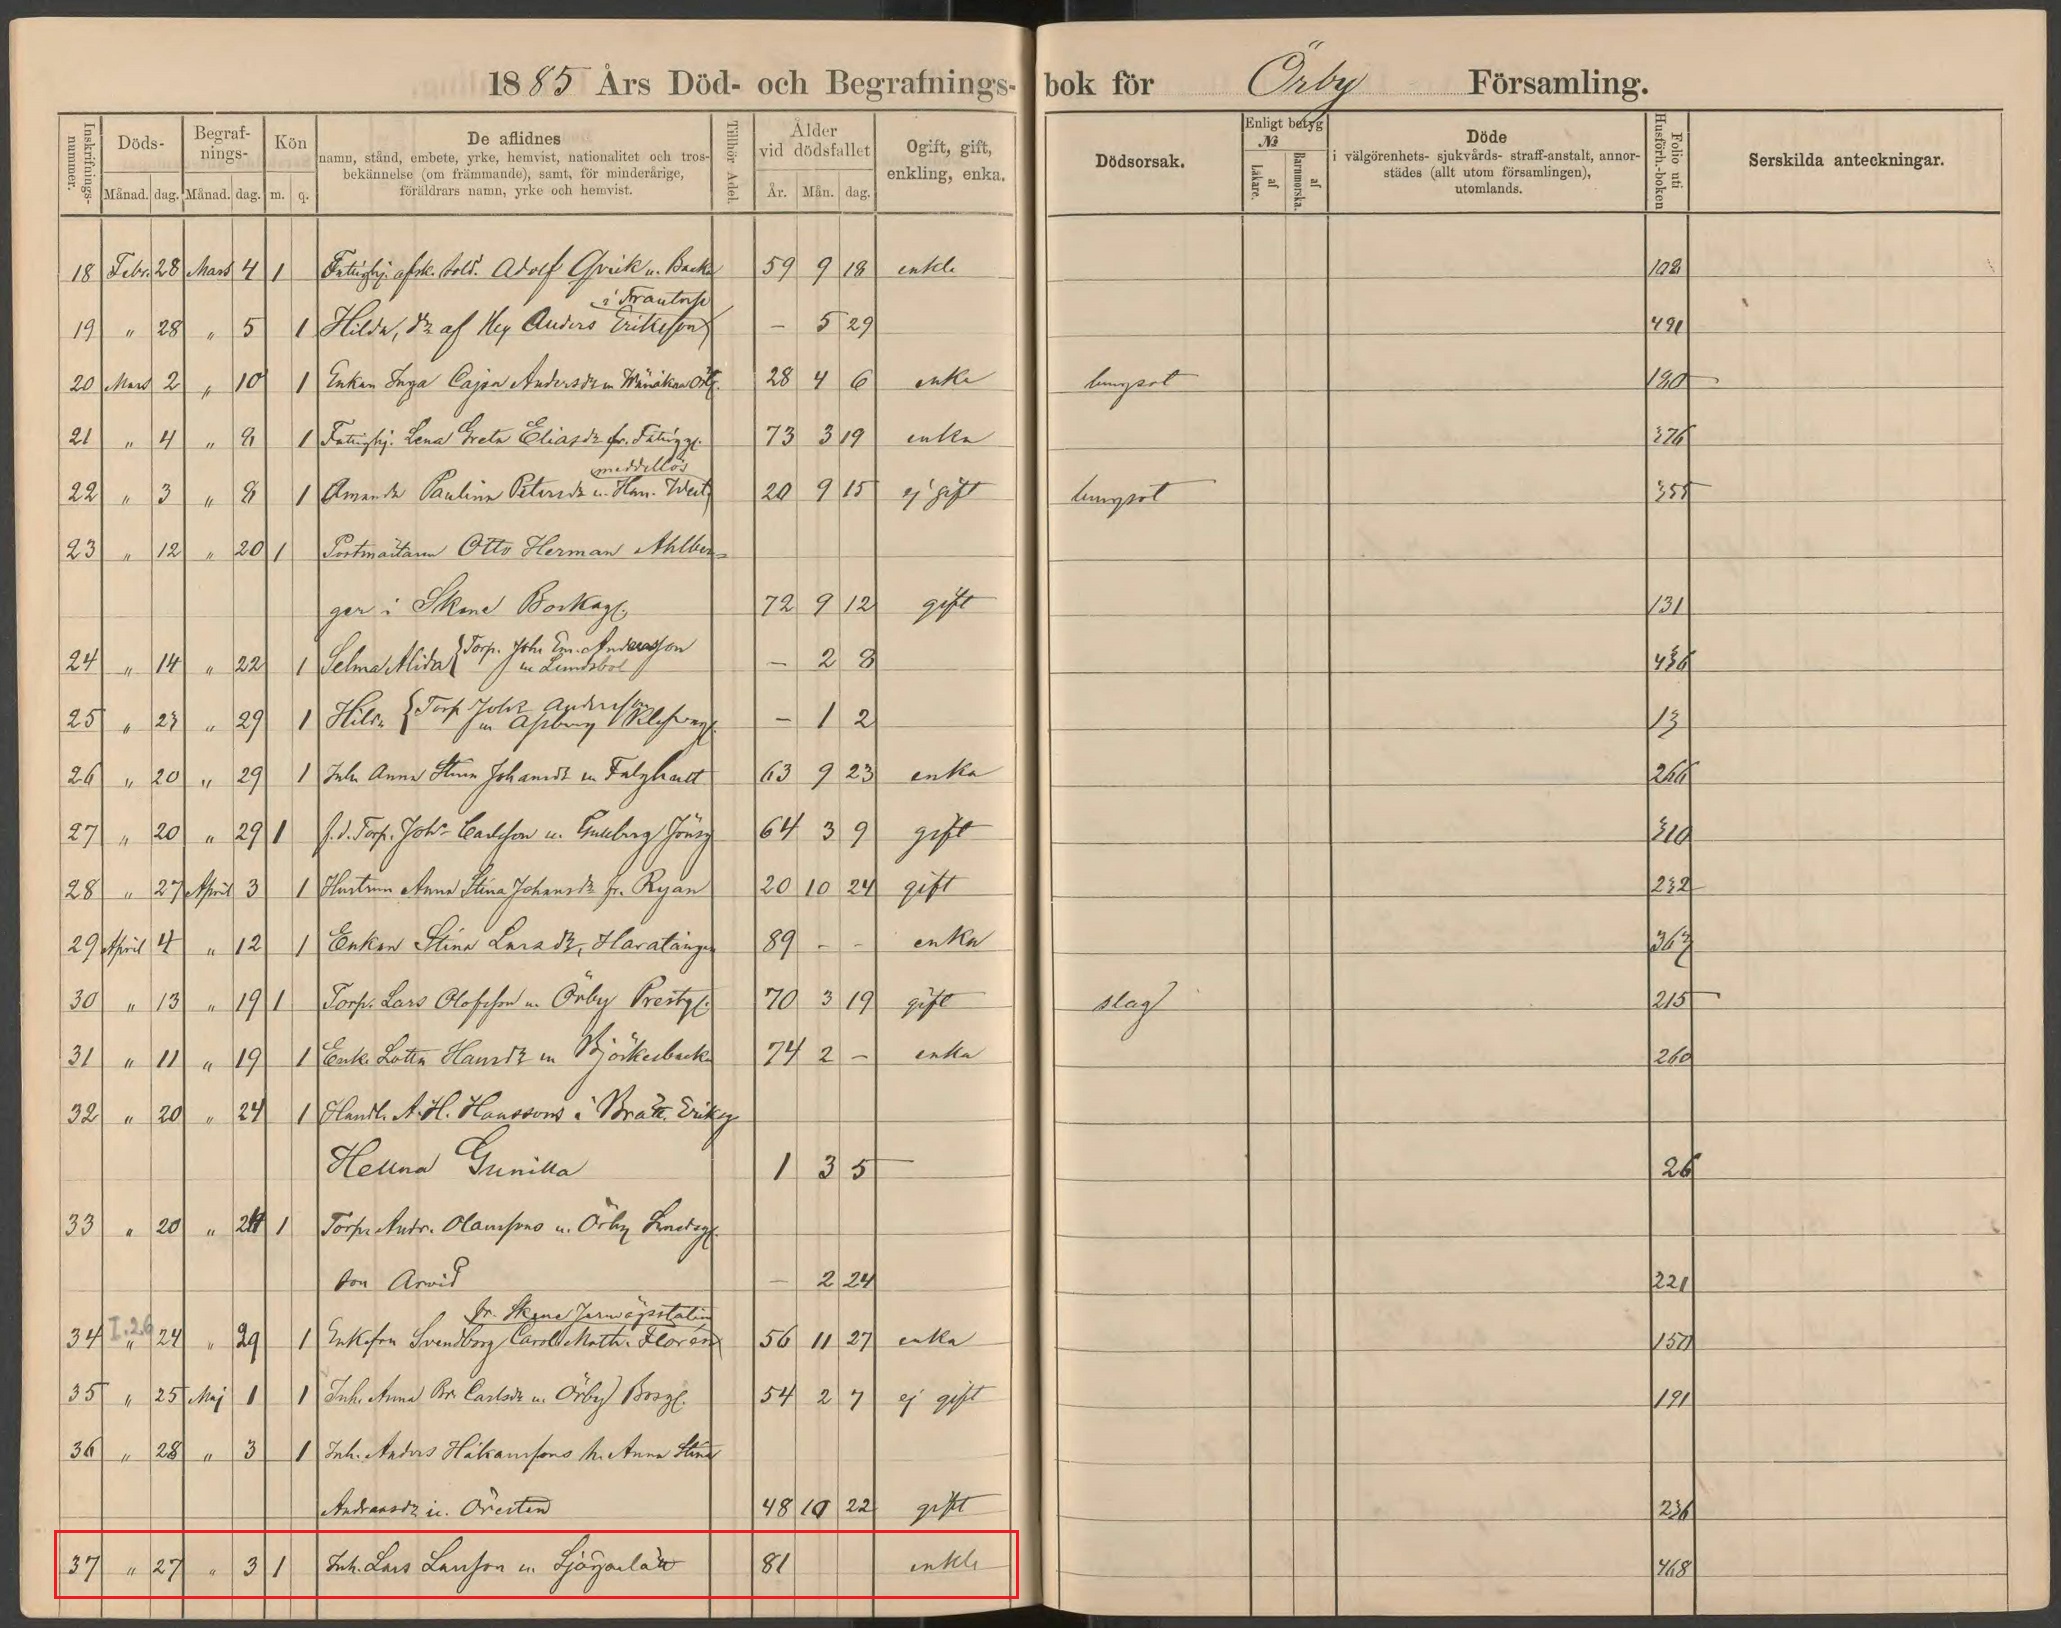 1885 Års Död- och Begrafnings-bok för Örby Församling.
Inskrifnings-nummer. Döds- Begraf-nings- Kön De aflidnes Tillhör Adel. Ålder vid dödsfallet Ogift, gift, enkling, enka. Dödsorsak. Enligt betyg № Döde Folio uti Husförh.-boken Serskilda anteckningar.
namn, stånd, embete, yrke, hemvist, nationalitet och tros-
bekännelse (om främmande), samt, för minderårige,
föräldrars namn, yrke och hemvist.
i välgörenhets- sjukvårds- straff-anstalt, annor-
städes (allt utom församlingen),
utomlands.
Månad. dag. Månad. dag. m. q. År. Mån. dag. af Läkare. af Barnmorska.
18 Febr. 28 Mars 4 1 Fattighj. afsk. Sold. Adolf Qvick u. Backa 59 9 18 enkl. 102
i Frantorp
19 " 28 " 5 1 Hilda, dr af Hey Anders Eriksson - 5 29 491
20 Mars 2 " 10 1 Enkan Inga Cajsa Andersdr u 28 4 6 enka lungsot 180
21 " 4 " 8 1 Fattighj. Lena Greta Eliasdr fr. Fattigg. 73 3 19 enka 376
meddellös
22 " 3 " 8 1 Amanda Paulina Petersdr u. 20 9 15 ej gift lungsot 355
23 " 12 " 20 1 Postmästaren Otto Herman Ahlber-
ger i Skene Boskag. 72 9 12 gift 131
24 " 14 " 22 1 Selma Alida { Torp. Joh. Em. Andersson
u Lundsbol - 2 8 436
25 " 23 " 29 1 Hilda { Torp Johs Andersson
u Asberg - 1 2 13
26 " 20 " 29 1 Inh. Anna Stina Johansdr u 63 9 23 enka 266
27 " 20 " 29 1 f.d. Torp. Johs Carlsson u. 64 3 9 gift 310
28 " 27 April 3 1 Hustrun Anna Stina Johansdr fr. Ryan 20 10 24 gift 232
29 April 4 " 12 1 Enkan Stina Larsdr, Haratången 89 - - enka 367
30 " 13 " 19 1 Torp. Lars Olofsson u. Örby Prestg. 70 3 19 gift slag 215
31 " 11 " 19 1 Enk. Lotta Hansdr u Björkesbacka 74 2 - enka 260
32 " 20 " 24 1 Handl. A. H. Hanssons i Brätt. Eriksg
Hellna Gunilla 1 3 5 26
33 " 20 " 24 1 Torp. Andr. Olaussons u. Örby
son Arvid - 2 24 221
fr. Skene Jernvägsstation
34 I.26 " 24 " 29 1 Enkefru Svendborg Carol. Math. Florén 56 11 27 enka 150
35 " 25 Maj 1 1 Inh. Anna Br. Carlsdr u. Örby 54 2 7 ej gift 191
36 " 28 " 3 1 Inh. Anders Håkanssons h. Anna Stina
Andreasdr u. Öresten 48 10 22 gift 236
37 " 27 " 3 1 Inh. Lars Larsson u. 81 enkl. 468